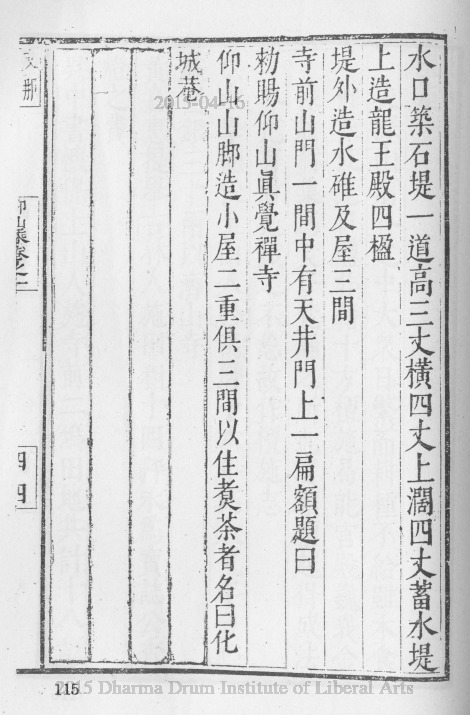 水口築石堤一道高三丈橫四丈上濶四丈蓄水堤
上造龍王殿四楹
堤外造水碓及屋三間
寺前山門一間中有天井門上一扁額題曰
勑賜仰山眞覺禪寺
仰山山脚造小屋二重俱三間以住煑茶者名曰化
城菴
仰山乘卷之二
四四
115
2015-04-16
2015 Dharma Drum Institute of Liberal Arts